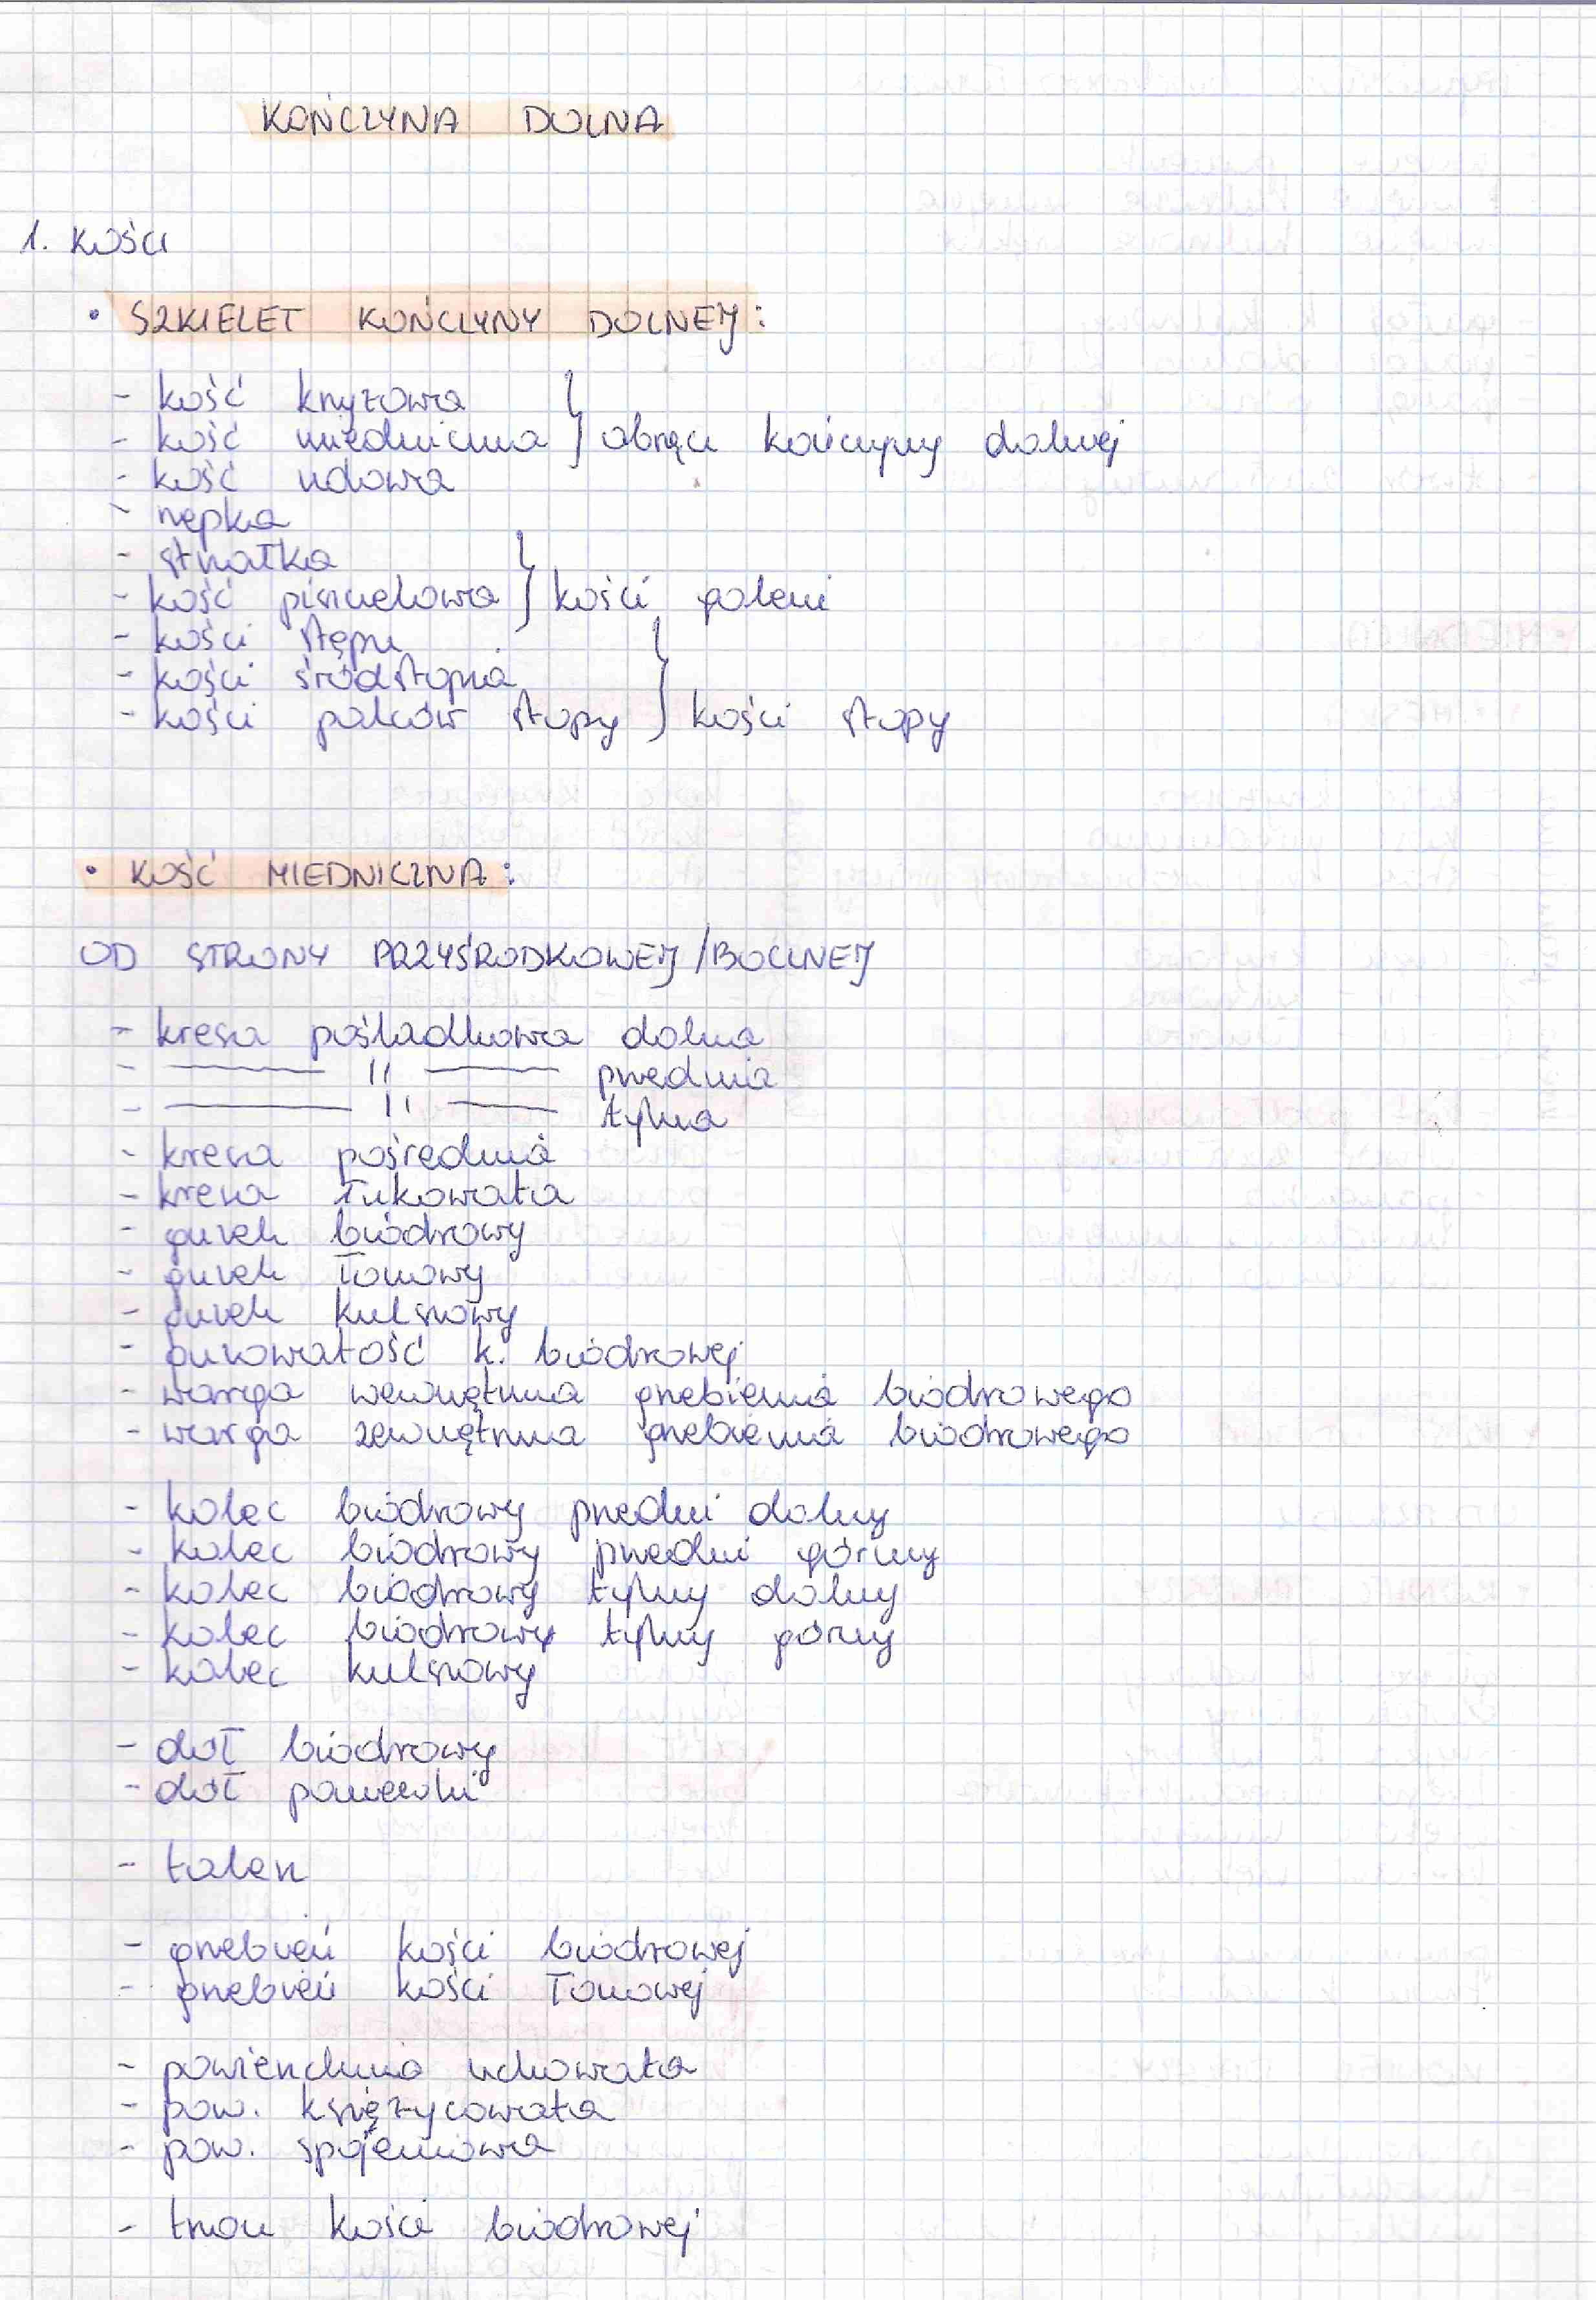 KOŃCZYNA DOLNA
1. KOŚCI
• SZKIELET KOŃCZYNY DOLNEJ:
- kość krzyżowa
- kość miedniczna } obręcz kończyny dolnej
- kość udowa
- rzepka
- strzałka
- kość piszczelowa } kości goleni
- kości stępu
- kości śródstopia
- kości palców stopy } kości stopy
• KOŚĆ MIEDNICZNA:
OD STRONY PRZYŚRODKOWEJ/BOCZNEJ
- kresa pośladkowa dolna
- —— 11 —— przednia
- —— 11 —— tylna
- kresa pośrednia
- kresa łukowata
- guzek biodrowy
- guzek łonowy
- guzek kulszowy
- guzowatość k. biodrowej
- warga wewnętrzna grzebienia biodrowego
- warga zewnętrzna grzebienia biodrowego
- kolec biodrowy przedni dolny
- kolec biodrowy przedni górny
- kolec biodrowy tylny dolny
- kolec biodrowy tylny górny
- kolec kulszowy
- dół biodrowy
- dół panewki
- talerz
- grzebień kości biodrowej
- grzebień kości łonowej
- powierzchnia uchowata
- pow. księżycowata
- pow. spojeniowa
- trzon kości biodrowej